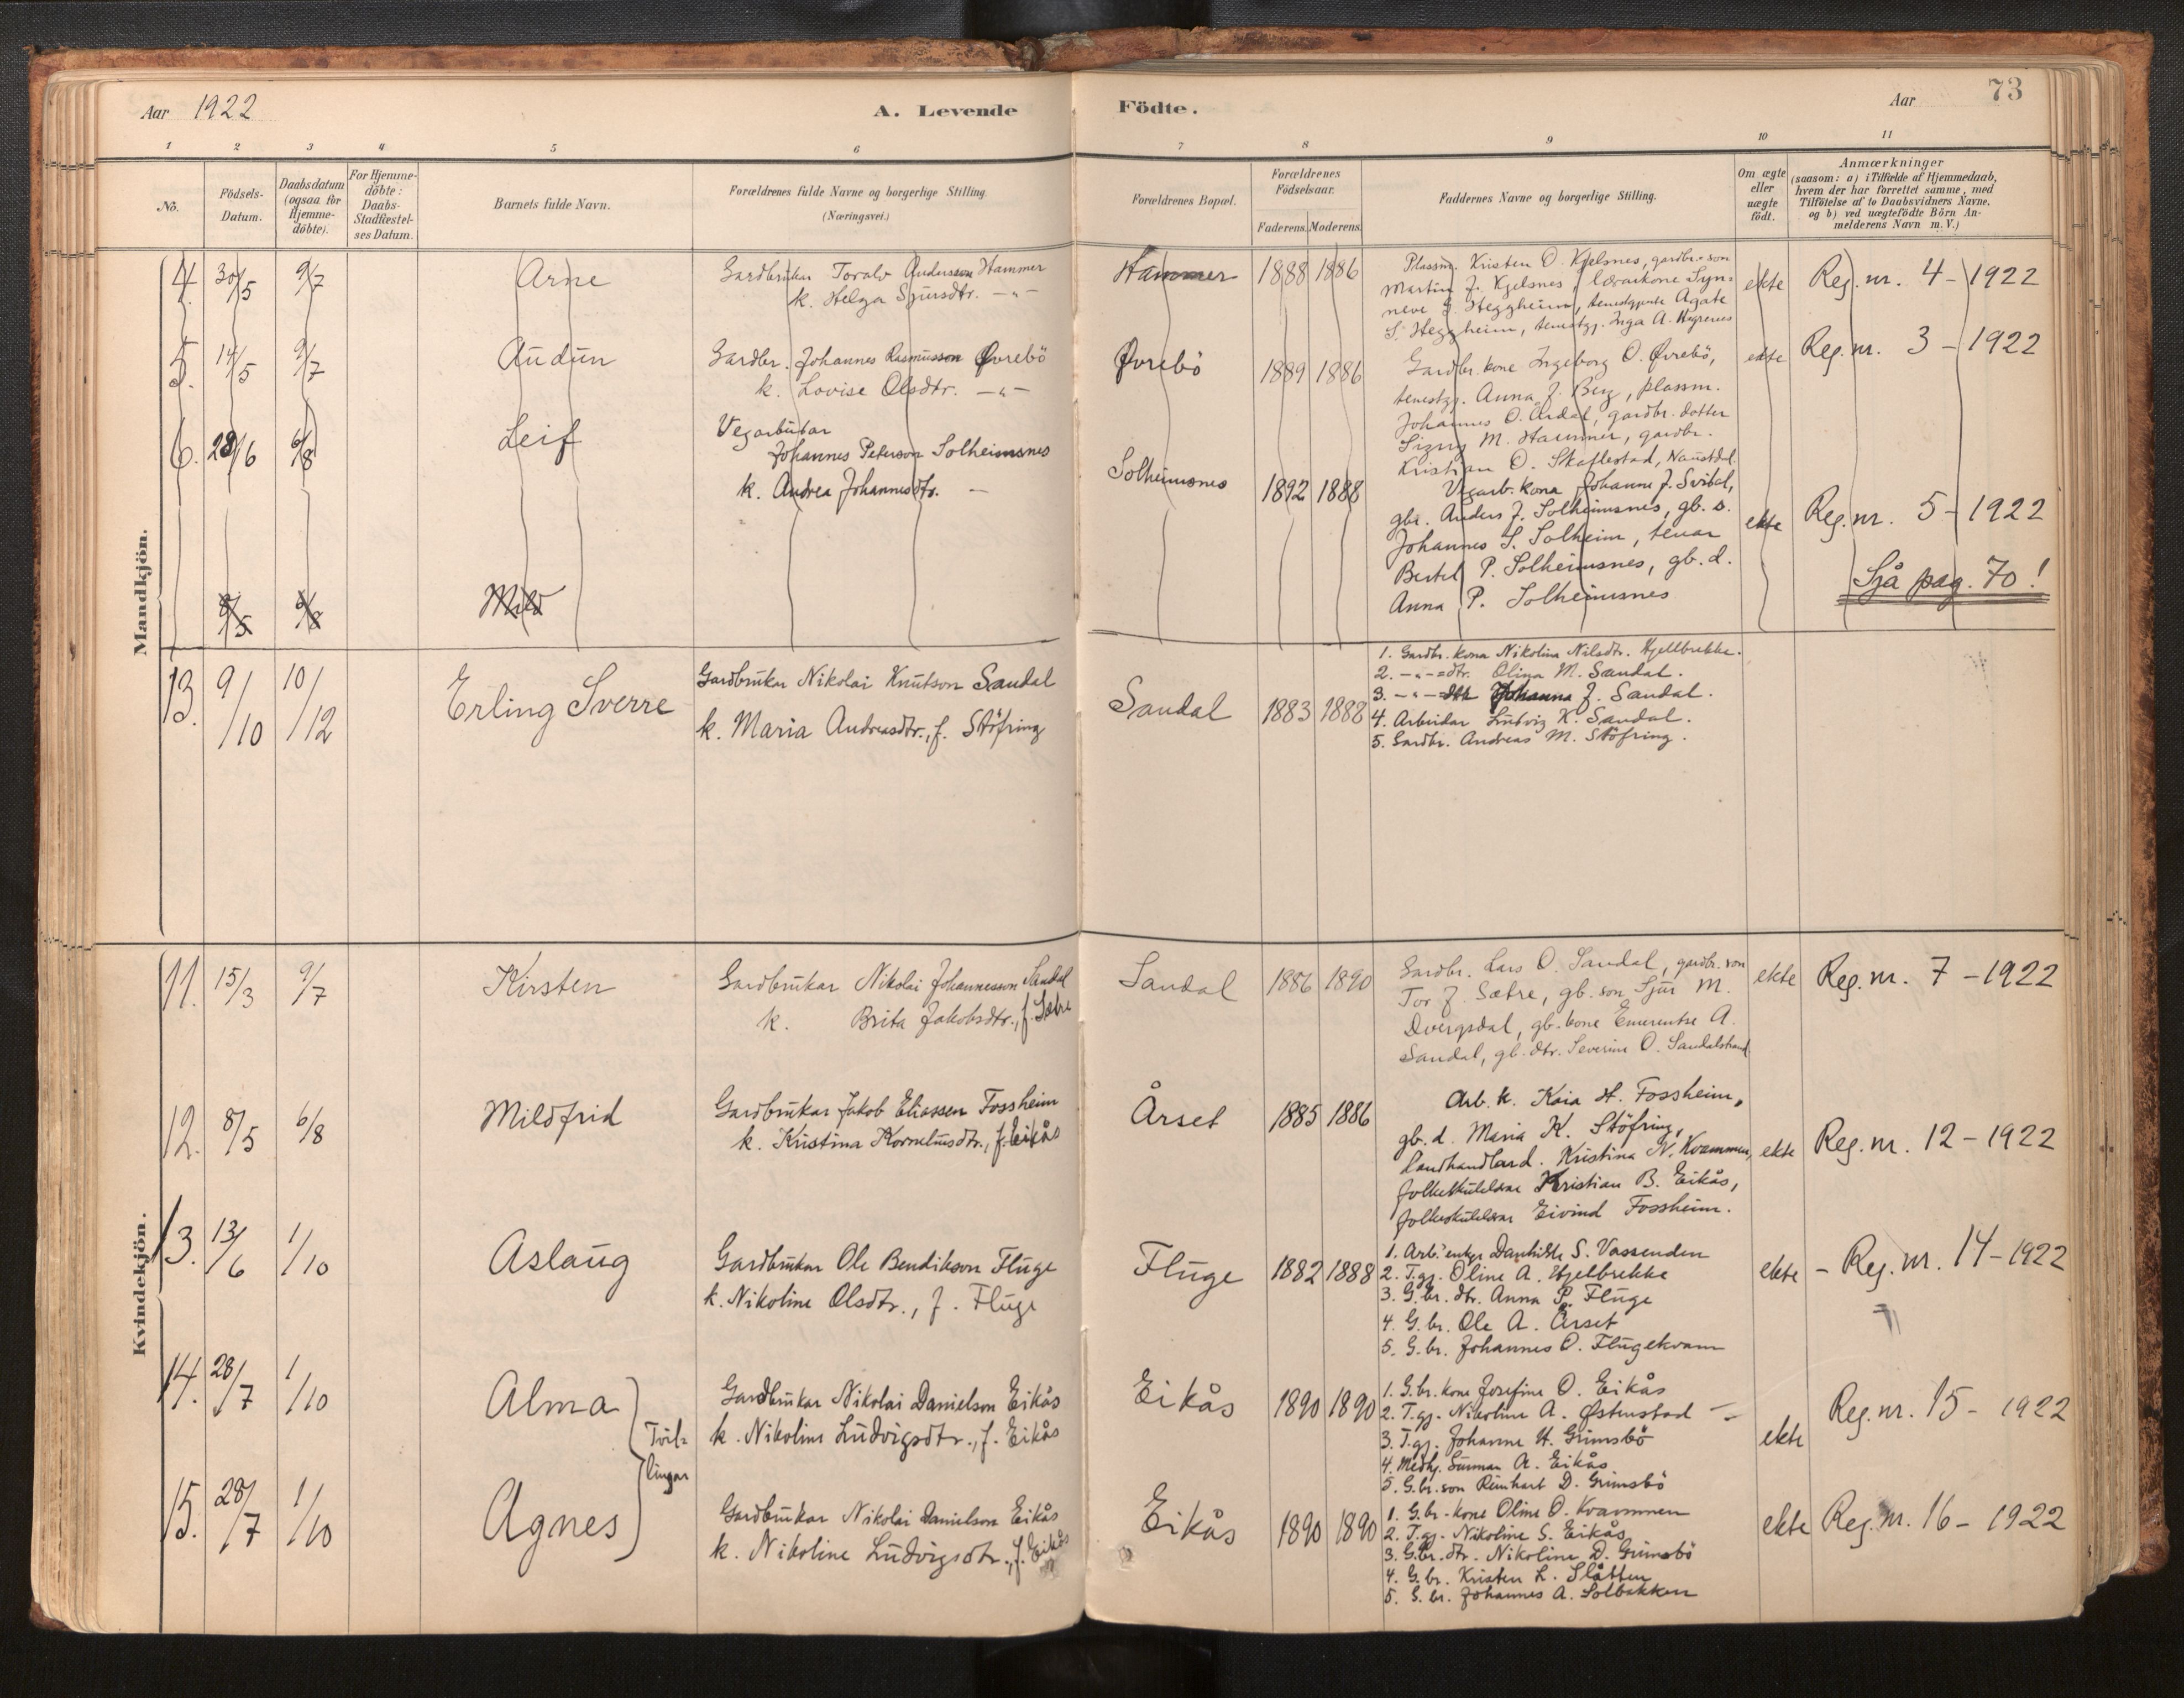 Aar 1922
A. Levende
Födte.
Aar
73
1 2 3 4 5 6 7 8 9 10 11
No.
Födsels-
Datum.
Daabsdatum
(ogsaa for
Hjemme-
döbte).
For Hjemme-
döbte:
Daabs-
Stadfæstel-
ses Datum.
Barnets fulde Navn.
Forældrenes fulde Navne og borgerlige Stilling.
(Næringsvei.)
Forældrenes Bopæl.
Forældrenes
Födselsaar.
Faderens. Moderens.
Faddernes Navne og borgerlige Stilling.
Om ægte
eller
uægte
födt.
Anmærkninger
(saasom: a) i Tilfælde af Hjemmedaab,
hvem der har forrettet samme, med
Tilföielse af to Daabsvidners Navne,
og b) ved uægtefödte Börn An-
melderens Navn m. V.)
Mandkjön.
4. 30/5 9/7 Arne
Gardbrukar Toralv Andersson Hammer
k. Helga Sjursdtr. -"-
Hammer 1888 1886
Plassm. Kristen O. Kjelsnes, gardbr. son
Martin J. Kjelsnes, lærarkone Syn-
neve S. Heggheim, tenestgjente Agate
S. Heggheim, tenestgj. Inga A.
ekte Reg. nr. 4 - 1922
5. 14/5 9/7 Audun
Gardbr. Johannes Rasmusson Øvrebö
k. Lovise Olsdtr. -"-
Øvrebö 1889 1886
Gardbr. kone Ingeborg O. Øvrebö,
tenestgj. Anna J. Berg, plassm.
Johannes O. Årdal, gardbr. dotter
Signy M. Hammer, gardbr.
Kristian O. Skaflestad, Naustdal
ekte Reg. nr. 3 - 1922
6. 28/6 6/8 Leif
Vegarbeidar
Johannes Peterson Solheimsnes
k. Andrea Johannesdtr. -
Solheimsnes 1892 1888
Vegarb. kona Johanne J.
gbr. Anders J. Solheimsnes, gb. s.
Johannes S. Solheim, tenar
Bertel P. Solheimsnes, gb. d.
Anna P. Solheimsnes
ekte Reg. nr. 5 - 1922
8/5 6/8 Mild
Sjå pag. 70!
13. 9/10 10/12 Erling Sverre
Gardbrukar Nikolai Knutson Sandal
k. Maria Andreasdtr., f. Stöfring
Sandal 1883 1888
1. Gardbr. kona Nikolina Nilsdtr. Hjellbrekke.
2. -"-=dtr. Olina M. Sandal.
3. -"-=dtr. Johanna J. Sandal.
4. Arbeidar Ludvig K. Sandal.
5. Gardbr. Andreas M. Stöfring.
Kvindekjön.
11. 15/3 9/7 Kirsten
Gardbrukar Nikolai Johannesson Sandal
k. Brita Jakobsdtr., f. Sætre
Sandal 1886 1890
Gardbr. Lars O. Sandal, gardbr. son
Tor J. Sætre, gb. son Sjur M.
Dvergsdal, gb. kone Emerentse A.
Sandal, gb. dtr. Severine O. Sandalstrand
ekte Reg. nr. 7 - 1922
12. 8/5 6/8 Mildfrid
Gardbrukar Jakob Eliassen Fossheim
k. Kristina Korneliusdtr., f. Eikås
Årset 1885 1886
Arb. k. Kaia H. Fossheim,
gb. d. Maria K. Stöfring,
landhandlard. Kristina N. Kvammen,
folkeskulelærar Kristian B. Eikås,
folkeskulelærar Eivind Fossheim.
ekte Reg. nr. 12 - 1922
13. 13/6 1/10 Aslaug
Gardbrukar Ole Bendikson Fluge
k. Nikoline Olsdtr., f. Fluge
Fluge 1882 1888
1. Arb. enkje S. Vassenden
2. T.gj. Oline A. Hjelbrekke
3. G.br. dtr. Anna P. Fluge
4. G.br. Ole A. Årset
5. G.br. Johannes O. Flugekvam
ekte - Reg. nr. 14 - 1922
14. 28/7 1/10 Alma
Tvil-
lingar
Gardbrukar Nikolai Danielson Eikås
k. Nikoline Ludvigsdtr., f. Eikås
Eikås 1890 1890
1. G.br. kone Josefine O. Eikås
2. T.gj. Nikoline A. Østenstad
3. T.gj. Johanne H. Grimsbö
4. Medhj. A. Eikås
5. G.br. son Reinhart D. Grimsbö
ekte Reg. nr. 15 - 1922
15. 28/7 1/10 Agnes
Gardbrukar Nikolai Danielson Eikås
k. Nikoline Ludvigsdtr., f. Eikås
Eikås 1890 1890
1. G.br. kone Oline O. Kvammen
2. T.gj. Nikoline S. Eikås
3. G.br. dtr. Nikoline D. Grimsbö
4. G.br. Kristen L. Slåtten
5. G.br. Johannes A. Solbakken
ekte Reg. nr. 16 - 1922